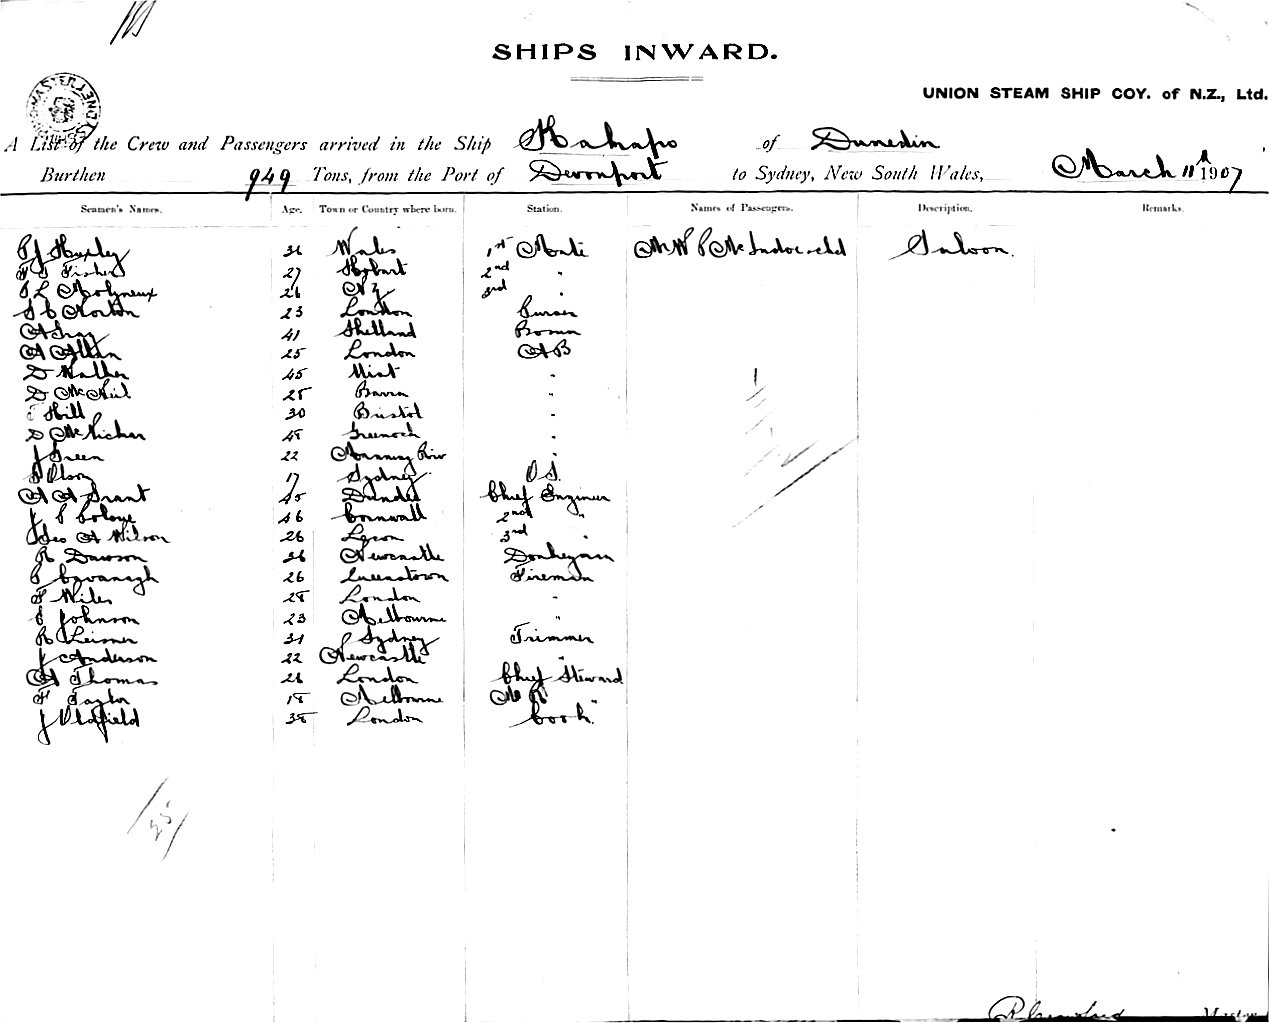 SHIPS INWARD.
UNION STEAM SHIP COY. of N.Z., Ltd.
A List of the Crew and Passengers arrived in the Ship Kahapo of Dunedin
Burthen 949 Tons, from the Port of Devonport to Sydney, New South Wales, March 11th 1907
Seamen's Names. Age. Town or Country where born. Station. Names of Passengers. Description. Remarks.
P J Huxley 36 Wales 1st Mate Saloon.
F S Fisher 27 Hobart 2nd "
S L Molyneux 26 N Z 3rd "
S C Norton 23 London Purser
A Gray 41 Shetland Bosun
A Allen 25 London A B
D Walker 45 Uist "
D McNeil 28 Barra "
Hill 30 Bristol "
D McVicker 48 Greenock "
J Green 22 Manning River "
Olson 17 Sydney O S.
A A Grant 45 Dundee Chief Engineer
J P 46 Cornwall 2nd "
Geo A Wilson 26 3rd "
R Dawson 36 Newcastle Donkeyman
P Cavanagh 26 Queenstown Fireman
F Wiles 28 London "
C Johnson 23 Melbourne "
R Leisner 31 Sydney Trimmer
J Anderson 22 Newcastle "
A Thomas 26 London Chief Steward
F Taylor 18 Melbourne M R "
J 38 London Cook.
25
R Crawford Master